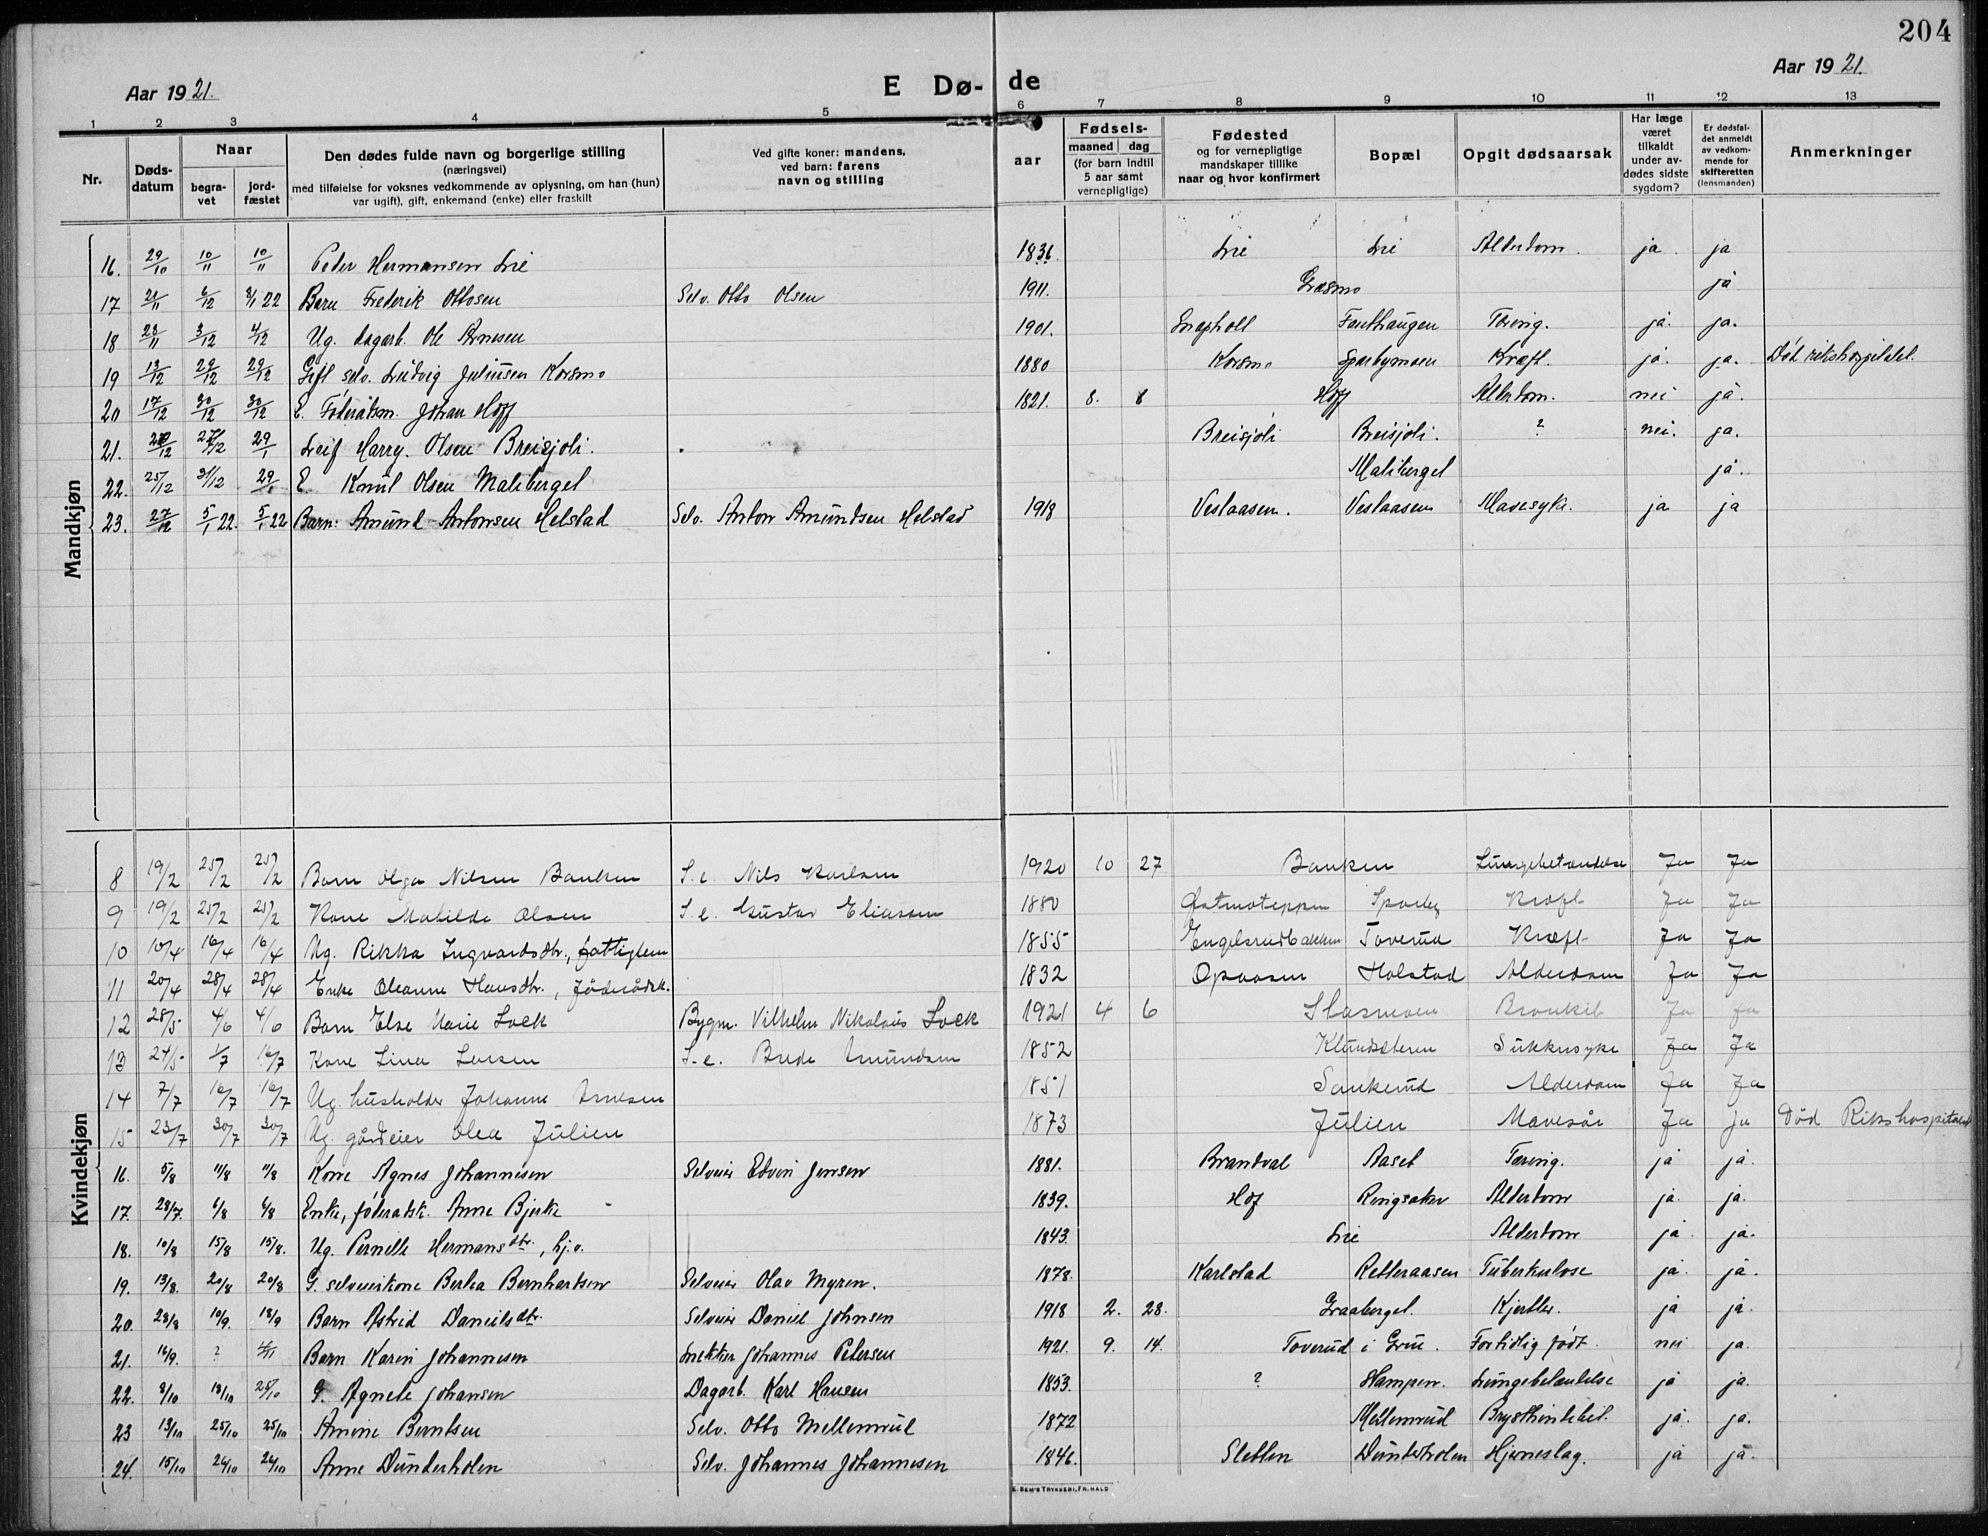 204
Aar 1921.
E Dø- de
Aar 1921.
1 2 3 4 5 6 7 8 9 10 11 12 13
Nr.
Døds-
datum
Naar
begra-
vet
jord-
fæstet
Den dødes fulde navn og borgerlige stilling
(næringsvei)
med tilføielse for voksnes vedkommende av oplysning, om han (hun)
var ugift), gift, enkemand (enke) eller fraskilt
Ved gifte koner: mandens,
ved barn: farens
navn og stilling
aar
Fødsels-
maaned dag
(for barn indtil
5 aar samt
vernepligtige)
Fødested
og for vernepligtige
mandskaper tillike
naar og hvor konfirmert
Bopæl
Opgit dødsaarsak
Har læge
været
tilkaldt
under av-
dødes sidste
sygdom?
Er dødsfal-
det anmeldt
av vedkom-
mende for
skifteretten
(lensmanden)
Anmerkninger
Mandkjøn
16. 29/10 10/11 10/11 Peder Hermansen Lie 1836. Lie Lie Alderdom. ja. ja
17 21/11 6/12 8/1 22 Barn Frederik Ottosen Selv. Otto Olsen 1911. Græsmo ja
18 23/11 3/12 4/12 Ug. dagarb. Ole Arnesen 1901. Snapholt Fauthaugen Tæring. ja. ja.
19 13/12 29/12 29/12 Gift selv. Ludvig Juliusen Korsmo 1880 Korsmo Sparbymoen Kræft. ja. ja. Død rikshospitalet.
20 17/12 30/12 30/12 E. Føderåtsm. Johan Hoff 1821. 8. 8 Hoff Alderdom. nei ja.
21. /12 27/12 29/1 Leif Harry. Olsen Breisjøli. Breisjøli Breisjøli. ? nei. ja.
22. 25/12 31/12 29/1 E. Knut Olsen Maliberget Maliberget ja.
23. 27/12 5/1 22. 5/1 22 Barn: Amund Antonsen Helstad Selv. Anton Amundsen Helstad 1918 Veslaasen. Veslaasen Mavesyk. ja ja
Kvindekjøn
8 19/2 25/2 25/2 Barn Olga Nilsen Banken S.e. Nils Karlsen 1920 10 27 Banken Lungebetændelse Ja Ja
9 19/2 25/2 25/2 Kone Matilde Olsen S.e. Gustav Eliassen 1880 Østmoteppen Sparby Kræft Ja Ja
10 10/4 16/4 16/4 Ug. Rikka Ingvardsdtr., fattiglem 1855 Engelsrudbakken Toverud Kræft Ja Ja
11 20/4 28/4 28/4 Enke Oleanne Hansdtr., føderådsk. 1832 Opaasen Holstad Alderdom Ja Ja
12 28/5 4/6 4/6 Barn Else Marie Loek Bygm. Vilhelm Nikolaus Loek 1921 4 6 Slasmoen Bronkit Ja Ja
13 24/5 1/7 16/7 Kone Lina Larsen S.e. Brede Amundsen 1852 Klundseteren Sukkersyke Ja Ja
14 7/7 16/7 16/7 Ug. husholder Johanne Arnesen 1851 Sankerud Alderdom Ja Ja
15 23/7 30/7 30/7 Ug. gårdeier Olea Julien 1873 Julien Mavesår Ja Ja Død Rikshospitalet
16. 5/8 11/8 11/8 Kone Agnes Johannesen Selveier Edvin Jensen 1881. Brandval Aaset Tæring. ja ja.
17. 28/7. 6/8 6/8 Enke, føderaatsk. Anne Bjerke 1839. Hof Ringsaker Alderdom ja. ja.
18. 10/8 15/8 15/8. Ug. Pernelle Hermansdtr., hj.v. 1843. Lie Alderdom ja. ja.
19. 13/8. 20/8 20/8 G. selveierkone Berta Bernhardsen Selveier Olav Myren. 1878. Karlstad Retteraasen Tuberkulose ja. ja.
20. 28/8 10/9. 18/9 Barn Astrid Danielsdtr. Selveier Daniel Johnsen 1918 2. 28. Graaberget. Kjertler. ja ja.
21. 16/9. ? /11 Barn Karin Johannesen Snekker Johannes Petersen 1921. 9. 14. Toverud i Grue. Fortidlig født. nei ja.
22. 8/10 18/10 25/10 G. Agnete Johansen Dagarb. Karl Hansen 1853. ? Hampen. Lungebetændelse ja ja.
23 13/10 25/10 25/10 Amine Berntsen Selv. Otto Mellemrud 1872 Mellemrud Brysthindebet. ja. ja.
24. 15/10 26/10 26/10 Anne Dunderholen Selv. Johannes Johannesen 1846. Sletten Dunderholen Hjerneslag. ja ja.
E. SEM'S TRYKKERI, FR.HALD